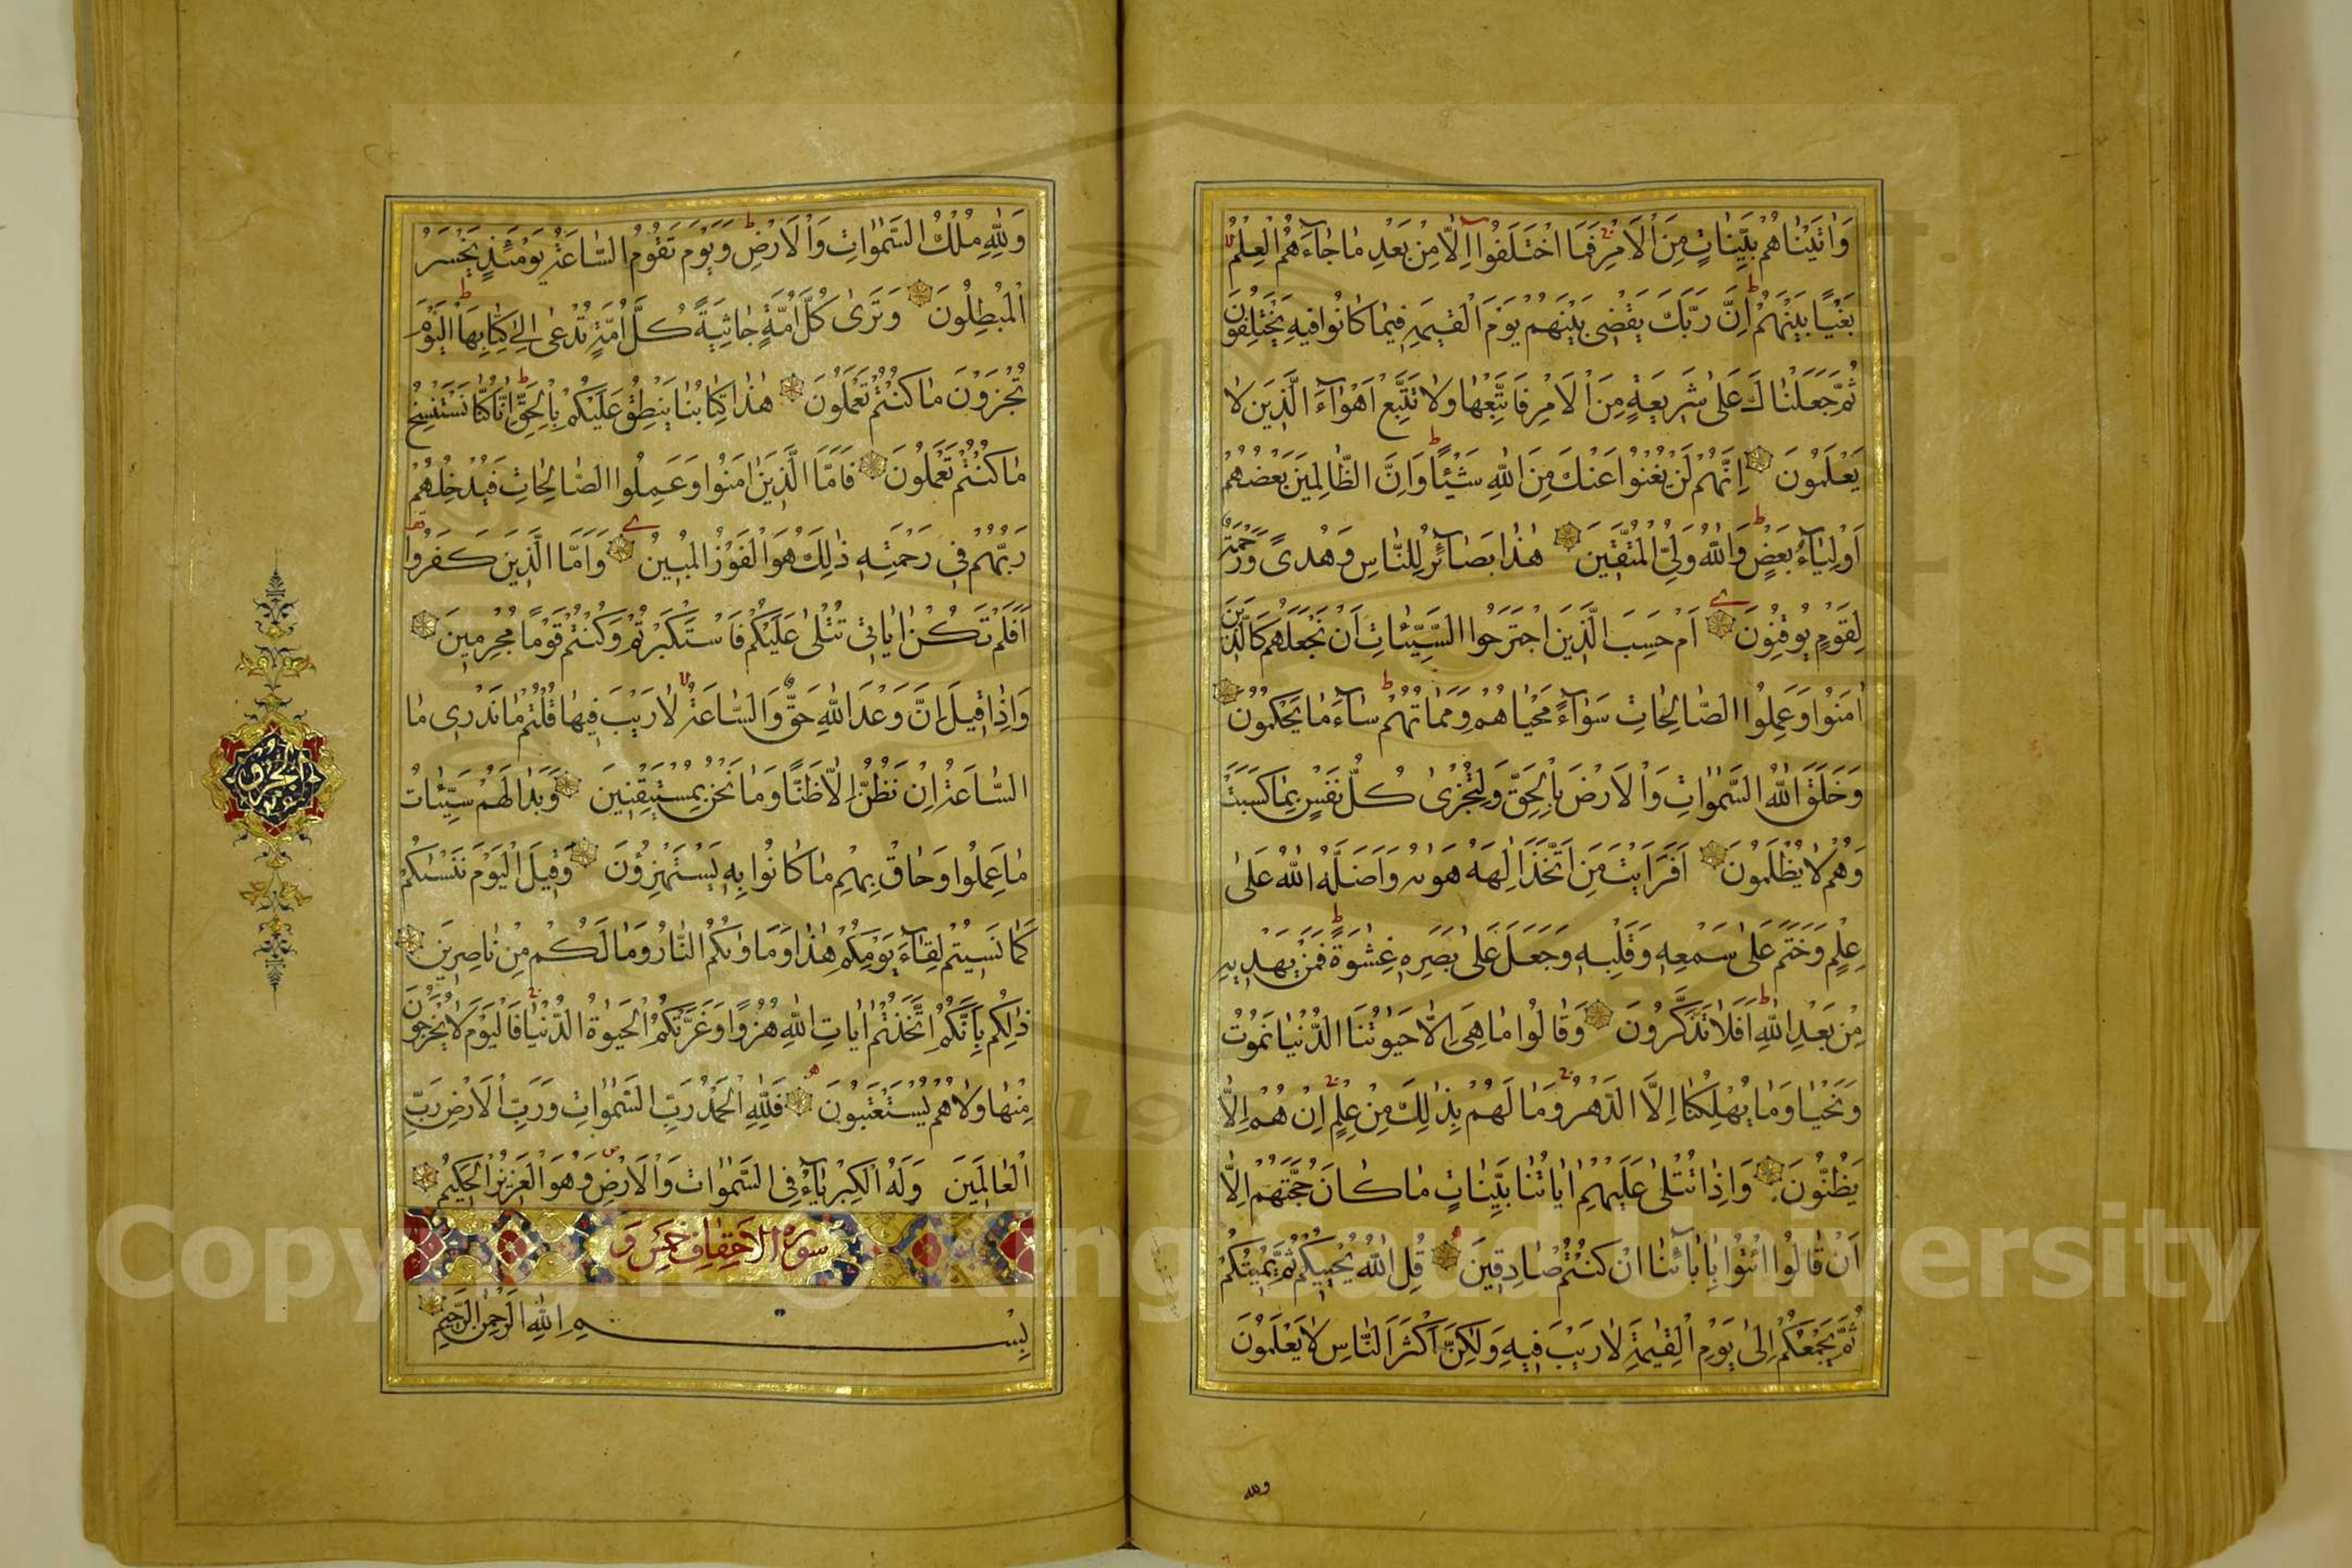 وَاٰتَيْنَاهُمْ بَيِّنَاتٍ مِنَ الْاَمْرِ فَمَا اخْتَلَفُوا اِلَّا مِنْ بَعْدِ مَا جَآءَهُمُ الْعِلْمُ
بَغْيًا بَيْنَهُمْ اِنَّ رَبَّكَ يَقْضِى بَيْنَهُمْ يَوْمَ الْقِيٰمَةِ فِيمَا كَانُوا فِيهِ يَخْتَلِفُونَ
ثُمَّ جَعَلْنَاكَ عَلٰى شَرِيعَةٍ مِنَ الْاَمْرِ فَاتَّبِعْهَا وَلَا تَتَّبِعْ اَهْوَآءَ الَّذِينَ لَا
يَعْلَمُونَ اِنَّهُمْ لَنْ يُغْنُوا عَنْكَ مِنَ اللهِ شَيْئًا وَاِنَّ الظَّالِمِينَ بَعْضُهُمْ
اَوْلِيَآءُ بَعْضٍ وَاللهُ وَلِىُّ الْمُتَّقِينَ هٰذَا بَصَآئِرُ لِلنَّاسِ وَهُدًى وَرَحْمَةٌ
لِقَوْمٍ يُوقِنُونَ اَمْ حَسِبَ الَّذِينَ اجْتَرَحُوا السَّيِّئَاتِ اَنْ نَجْعَلَهُمْ كَالَّذِينَ
اٰمَنُوا وَعَمِلُوا الصَّالِحَاتِ سَوَآءً مَحْيَاهُمْ وَمَمَاتُهُمْ سَآءَ مَا يَحْكُمُونَ
وَخَلَقَ اللهُ السَّمٰوَاتِ وَالْاَرْضَ بِالْحَقِّ وَلِتُجْزٰى كُلُّ نَفْسٍ بِمَا كَسَبَتْ
وَهُمْ لَا يُظْلَمُونَ اَفَرَاَيْتَ مَنِ اتَّخَذَ اِلٰهَهُ هَوٰىهُ وَاَضَلَّهُ اللهُ عَلٰى
عِلْمٍ وَخَتَمَ عَلٰى سَمْعِهِ وَقَلْبِهِ وَجَعَلَ عَلٰى بَصَرِهِ غِشٰوَةً فَمَنْ يَهْدِيهِ
مِنْ بَعْدِ اللهِ اَفَلَا تَذَكَّرُونَ وَقَالُوا مَا هِىَ اِلَّا حَيَوتُنَا الدُّنْيَا نَمُوتُ
وَنَحْيَا وَمَا يُهْلِكُنَا اِلَّا الدَّهْرُ وَمَا لَهُمْ بِذٰلِكَ مِنْ عِلْمٍ اِنْ هُمْ اِلَّا
يَظُنُّونَ وَاِذَا تُتْلٰى عَلَيْهِمْ اٰيَاتُنَا بَيِّنَاتٍ مَا كَانَ حُجَّتَهُمْ اِلَّا
اَنْ قَالُوا ائْتُوا بِاٰبَآئِنَا اِنْ كُنْتُمْ صَادِقِينَ قُلِ اللهُ يُحْيِيكُمْ ثُمَّ يُمِيتُكُمْ
ثُمَّ يَجْمَعُكُمْ اِلٰى يَوْمِ الْقِيٰمَةِ لَا رَيْبَ فِيهِ وَلٰكِنَّ اَكْثَرَ النَّاسِ لَا يَعْلَمُونَ
ولله
وَلِلّٰهِ مُلْكُ السَّمٰوَاتِ وَالْاَرْضِ وَيَوْمَ تَقُومُ السَّاعَةُ يَوْمَئِذٍ يَخْسَرُ
الْمُبْطِلُونَ وَتَرٰى كُلَّ اُمَّةٍ جَاثِيَةً كُلُّ اُمَّةٍ تُدْعٰى اِلٰى كِتَابِهَا الْيَوْمَ
تُجْزَوْنَ مَا كُنْتُمْ تَعْمَلُونَ هٰذَا كِتَابُنَا يَنْطِقُ عَلَيْكُمْ بِالْحَقِّ اِنَّا كُنَّا نَسْتَنْسِخُ
مَا كُنْتُمْ تَعْمَلُونَ فَاَمَّا الَّذِينَ اٰمَنُوا وَعَمِلُوا الصَّالِحَاتِ فَيُدْخِلُهُمْ
رَبُّهُمْ فِى رَحْمَتِهِ ذٰلِكَ هُوَ الْفَوْزُ الْمُبِينُ وَاَمَّا الَّذِينَ كَفَرُوا
اَفَلَمْ تَكُنْ اٰيَاتِى تُتْلٰى عَلَيْكُمْ فَاسْتَكْبَرْتُمْ وَكُنْتُمْ قَوْمًا مُجْرِمِينَ
وَاِذَا قِيلَ اِنَّ وَعْدَ اللهِ حَقٌّ وَالسَّاعَةُ لَا رَيْبَ فِيهَا قُلْتُمْ مَا نَدْرِى مَا
السَّاعَةُ اِنْ نَظُنُّ اِلَّا ظَنًّا وَمَا نَحْنُ بِمُسْتَيْقِنِينَ وَبَدَا لَهُمْ سَيِّئَاتُ
مَا عَمِلُوا وَحَاقَ بِهِمْ مَا كَانُوا بِهِ يَسْتَهْزِؤُنَ وَقِيلَ الْيَوْمَ نَنْسٰىكُمْ
كَمَا نَسِيتُمْ لِقَآءَ يَوْمِكُمْ هٰذَا وَمَاْوٰىكُمُ النَّارُ وَمَا لَكُمْ مِنْ نَاصِرِينَ
ذٰلِكُمْ بِاَنَّكُمُ اتَّخَذْتُمْ اٰيَاتِ اللهِ هُزُوًا وَغَرَّتْكُمُ الْحَيٰوةُ الدُّنْيَا فَالْيَوْمَ لَا يُخْرَجُونَ
مِنْهَا وَلَا هُمْ يُسْتَعْتَبُونَ فَلِلّٰهِ الْحَمْدُ رَبِّ السَّمٰوَاتِ وَرَبِّ الْاَرْضِ رَبِّ
الْعَالَمِينَ وَلَهُ الْكِبْرِيَآءُ فِى السَّمٰوَاتِ وَالْاَرْضِ وَهُوَ الْعَزِيزُ الْحَكِيمُ
سورة الاحقاف خمس و
بِسْمِ اللهِ الرَّحْمٰنِ الرَّحِيمِ
Copyright © King Saud University